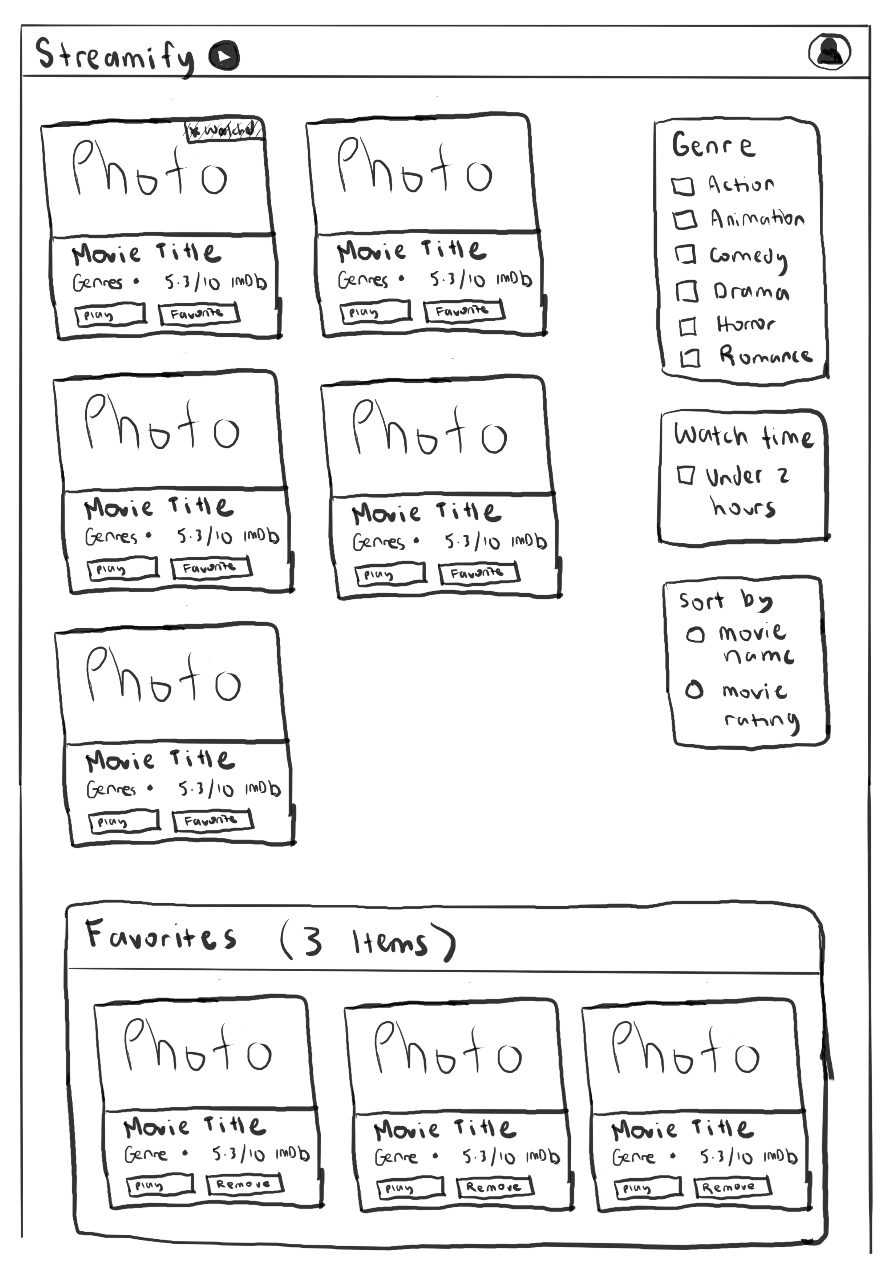 Streamify
x Watched
Photo
Movie Title
Genres • 5.3/10 IMDb
Play Favorite
Photo
Movie Title
Genres • 5.3/10 IMDb
Play Favorite
Photo
Movie Title
Genres • 5.3/10 IMDb
Play Favorite
Photo
Movie Title
Genres • 5.3/10 IMDb
Play Favorite
Photo
Movie Title
Genres • 5.3/10 IMDb
Play Favorite
Genre
Action
Animation
Comedy
Drama
Horror
Romance
Watch time
Under 2
hours
Sort by
movie
name
movie
rating
Favorites (3 Items)
Photo
Movie Title
Genre • 5.3/10 IMDb
Play Remove
Photo
Movie Title
Genre • 5.3/10 IMDb
Play Remove
Photo
Movie Title
Genre • 5.3/10 IMDb
Play Remove